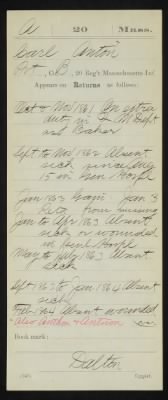 A 20 Mass.
Carl Anton
Pvt. Co. B, 20 Reg't Massachusetts Inf.
Appears on Returns as follows:
Oct & Nov 1861 On extra
duty in
and Baker
Sept to Nov 1862 Absent
sick since Aug
15 in Gen Hosp'l
Jan 1863 Gain Jan 3
from missing
Jan to Apr 1863 Absent
sick or wounded
in Gen'l Hosp'l
May to July 1863 Absent
sick
Sept 1863 to Jan 1864 Absent
sick
Feb 1864 Absent wounded
Also Anthon & Antoron
Book mark:
Dalton
Copyist.